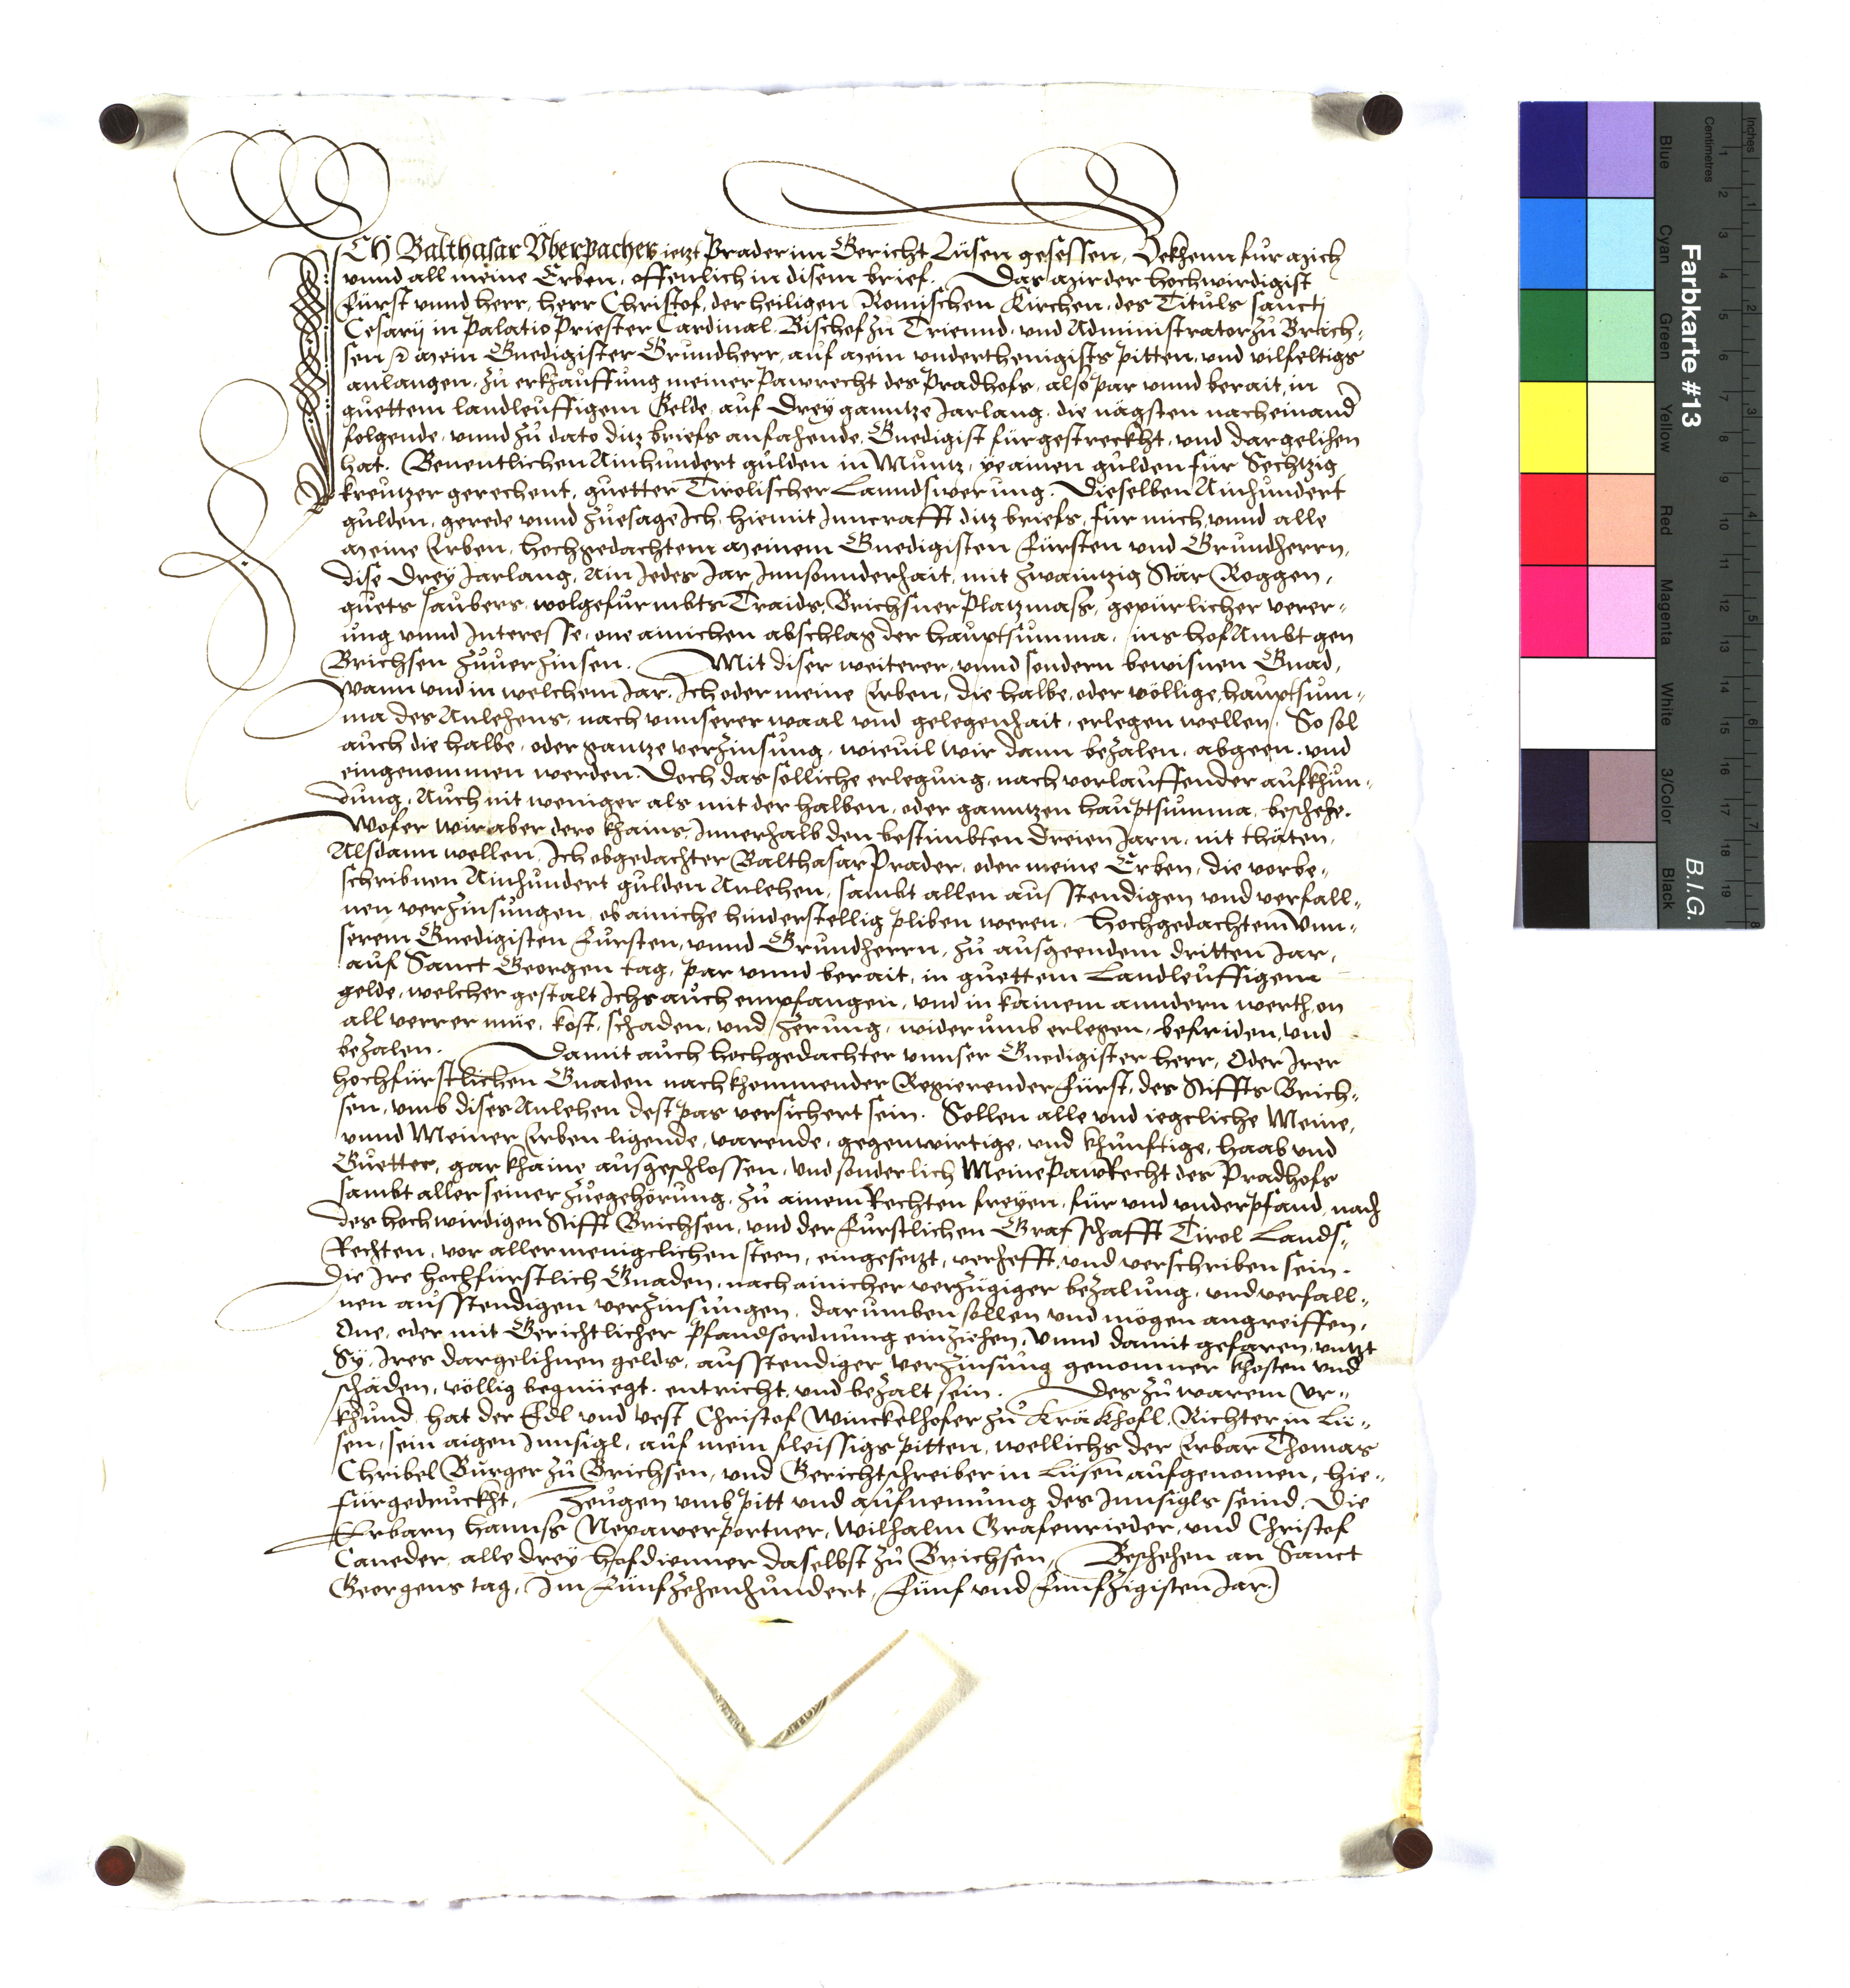 ICH Balthasar Vberpacher jetzt Prader im Gericht Lüsen gesessen, Bekhenn für mich
vnnd all meine Erben, offenlich in disem brief. Das mir der hochwirdigist
Fürst vnnd herr, herr Christof, der heiligen Römischen Kirchen, des Tituls sanctj
Cesarij in Palatio Priester Cardinal Bischof zu Triennd, vnd Administrator zu Brich-
sen mein Gnedigister Grundherr, auf mein vnderthenigists pitten, vnd vilfeltigs
anlangen, zu erkhauffung meiner Pawrecht des Pradhofs, also par vnnd berait, in
guettem landleuffigem Gelde, auf Drey ganntze Jarlang, die nägsten nacheinand
folgende, vnnd zu dato ditz briefs anfahende, Gnedigist fürgestreckht, vnd dargelihen
hat. Benentlichen Ainhundert gulden in Müntz, ye ainen gulden für Sechtzig
kreutzer gerechent, guetter Tirolischer Lanndswerung. Dieselben Ainhundert
gulden, gerede vnnd zuesage Ich, hiemit Inncrafft ditz briefs, für mich vnnd alle
meine Erben, hochgedachtem meinem Gnedigisten Fürsten vnd Grundherrn,
dise Drey Jarlang, Ain Jedes Jar Innsonnderhait, mit zwaintzig Stär Roggen,
guets saubers, wolgefürmbts Traids, Brichsner Platzmass, gepürlicher verer-
ung vnnd Interesse, one ainichen abschlag der hauptsumma, ins hof Ambt gen
Brichsen zuuerzinsen. Mit diser weiterer, vnnd sondern bewisnen Gnad,
Wann vnd in welchem Jar, Ich oder meine Erben, die halbe, oder völlige hauptsum-
ma des Anlehens, nach vnnserer waal vnd gelegenhait, erlegen wellen, So sol
auch die halbe, oder gantze verzinsung, wieuil wir dann bezalen, abgeen, vnd
eingenommen werden. Doch das solliche erlegung, nach vorlauffender aufkhün-
dung, Auch nit weniger als mit der halben, oder ganntzen hauptsumma, beschehe.
Wofer wir aber dero khains, Innerhalb den bestimbten dreien Jarn, nit thäten,
Alsdann wellen, Ich obgedachter Balthasar Prader, oder meine Erben, die vorbe-
schribnen Ainhundert gulden Anlehen, sambt allen ausstendigen vnd verfall-
nen verzinsungen, ob ainiche hinderstellig pliben weren, hochgedachtem Vnn-
serem Gnedigisten Fürsten, vnnd Grundherrn, zu ausgeendem dritten Jar,
auf Sanct Georgen tag, par vnnd berait, in guettem Landleuffigem
gelde, welcher gestalt Ichs auch empfangen, vnd in kainem anndern werth, on
all verrer müe, kost, schaden, vnd zerung, widerumb erlegen, befriden, vnd
bezalen. Damit auch hochgedachter vnnser Gnedigister herr, Oder Irer
hochfürstlichen Gnaden nachkhommender Regierender Fürst, des Stiffts Brich-
sen, vmb dises Anlehen dest pas versichert sein. Sollen alle vnd iegcliche Meine,
vnnd Meiner Erben ligende, varende, gegenwirtige, vnd khünftige, haab vnd
Guetter, gar khaine ausgeschlossen, vnd sonderlich Meine PawRecht des Pradhofs
sambt aller seiner zuegehörung, zu ainem Rechten freyen, für vnd vnderpfand, nach
des hochwirdigen Stifft Brichsen, vnd der Fürstlichen Grafschafft Tirol Lands-
Rechten, vor allermenigclichen steen, eingesetzt, verhefft, vnd verschriben sein.
Die Ire hochfürstlich Gnaden, nach ainicher verzügiger bezalung, vnd verfall-
nen ausstendigen verzinsungen, darumben sollen vnd mögen angreiffen,
One, oder mit Gerichtlicher Pfandsordnung einziehen, vnnd damit gefaren, vntzt
Sy, Ires dargelihnen gelds, ausstendiger verzinsung genommer khosten vnd
schäden, völlig begnüegt, entricht, vnd bezalt sein. Des zu warem Vr-
khund, hat der Edl vnd vest Christof Winckelhofer zu Kräkhofl, Richter in Lü-
sen, sein aigen Innsigl, auf mein fleissigs pitten, wellichs der Erbar Thomas
Chribel Burger zu Brichsen, vnd Gerichtschreiber in Lüsen aufgenomen, hie-
fürgedruckht, Zeugen vmb pitt vnd aufnemung des Innsigls seind, Die
Erbarn hannss Neyawer Portner, Wilhalm Grafenrieder, vnd Christof
Caneder, alle drey hofdienner daselbst zu Brichsen, Beschehen an Sanct
Georgens tag, Im Fünfzehenhundert, Fünf vnd Fünfzigisten Jar.
Inches
Centimetres
Farbkarte #13
B.I.G.
Blue
Cyan
Green
Yellow
Red
Magenta
White
3/Color
Black
1 2 3 4 5 6 7 8 9 10 11 12 13 14 15 16 17 18 19
1 2 3 4 5 6 7 8